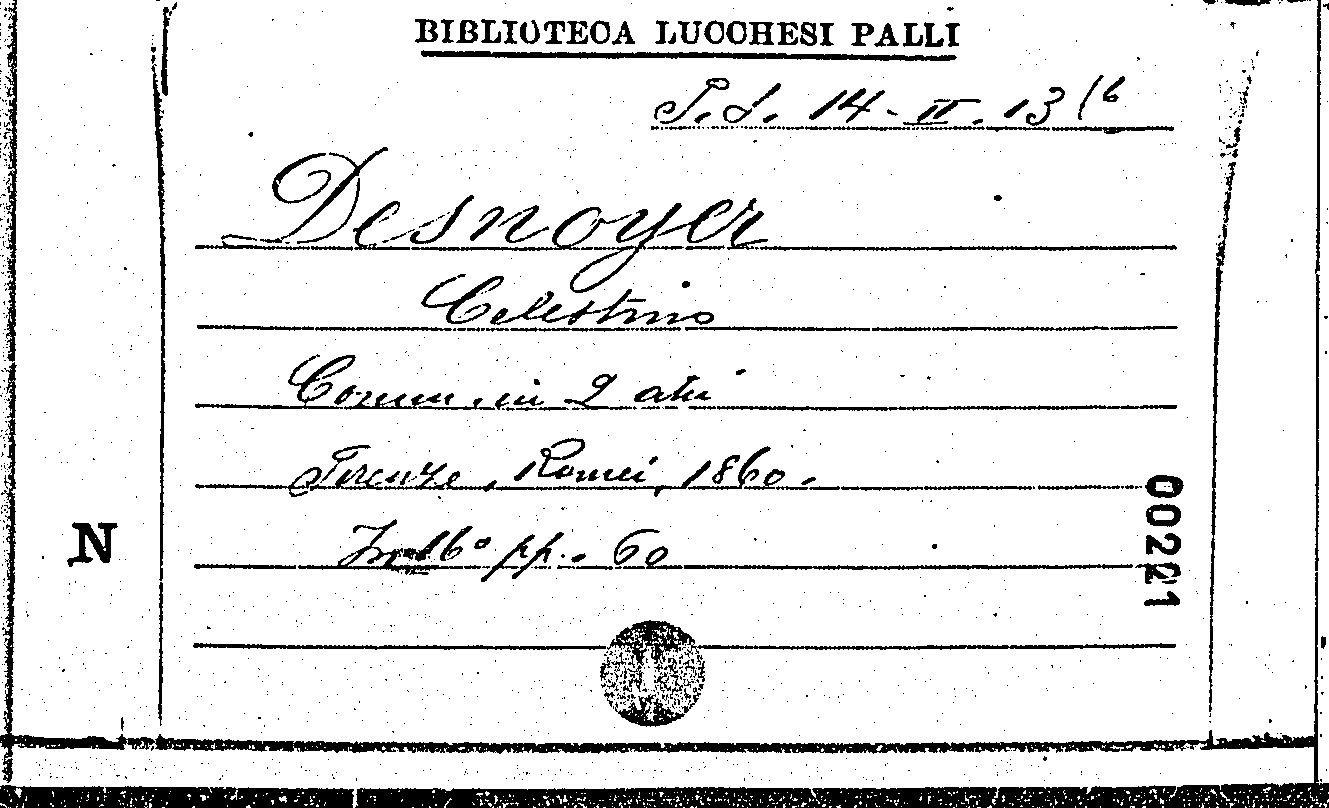 BIBLIOTECA LUCCHESI PALLI
T.S. 14-II. 13 (6
Desnoyer
Celestino
Comm. in 2 atti
Firenze, Romei, 1860.
In 16° pp. 60
N
00221